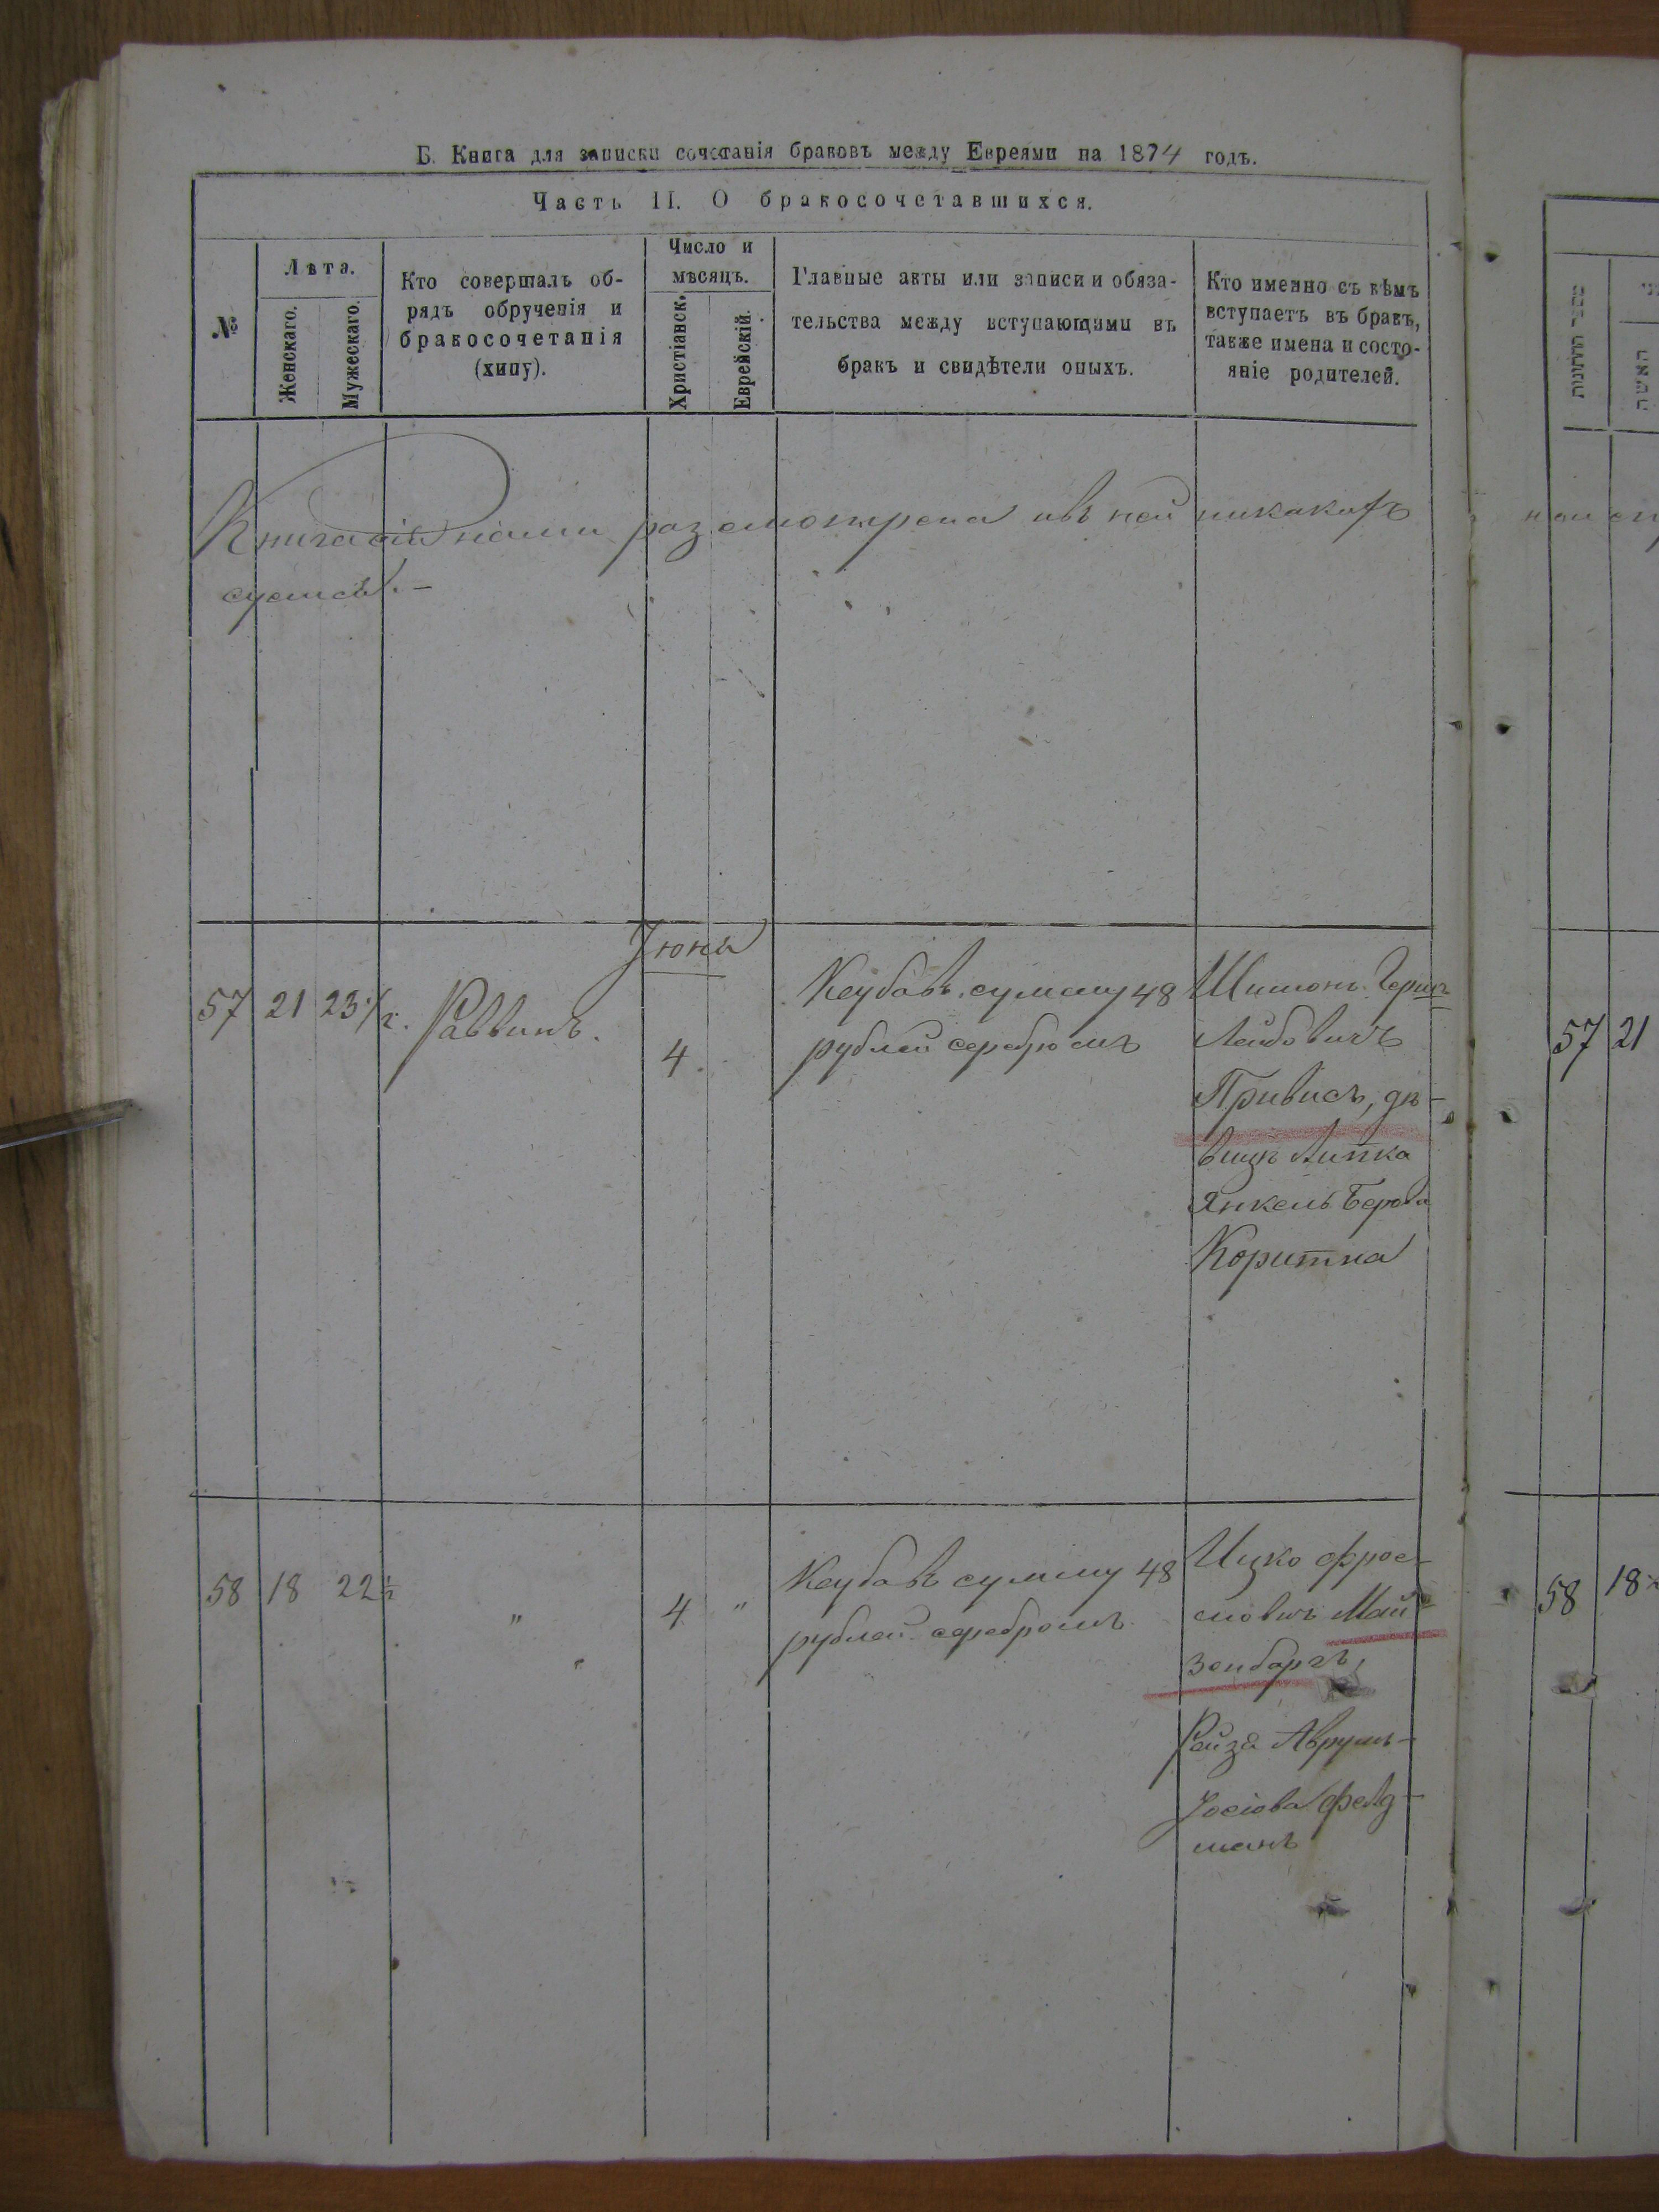 Б. Книга для записки сочетанія браковъ между Евреями на 1874 годъ.
Часть II. О бракосочетавшихся.
№
Лѣта.
Женскаго.
Мужескаго.
Кто совершалъ об-
рядъ обрученія и
бракосочетанія
(хипу).
Число и
мѣсяцъ.
Христіанск.
Еврейскій.
Главные акты или записи и обяза-
тельства между вступающими въ
бракъ и свидѣтели оныхъ.
Кто именно съ кѣмъ
вступаетъ въ бракъ,
также имена и состо-
яніе родителей.
Книга сія нами разсмотрена и въ ней никакихъ
Іюнь
57 21 23 1/2. Раввинъ. 4.
Кеубавъ сумму 48
рублей серебромъ
Шимонъ Герш-
Лейбовичъ
Привисъ, дѣ-
вицѣ Липка
Янкель Берова
Коритна
58 18 22 1/2 " 4 "
Кеубавъ сумму 48
рублей серебромъ
Ицко Фрое-
мовичъ Май-
зенбергъ,
Рейза Аврумъ-
Іосіова Фелд-
манъ
57 21
58 18